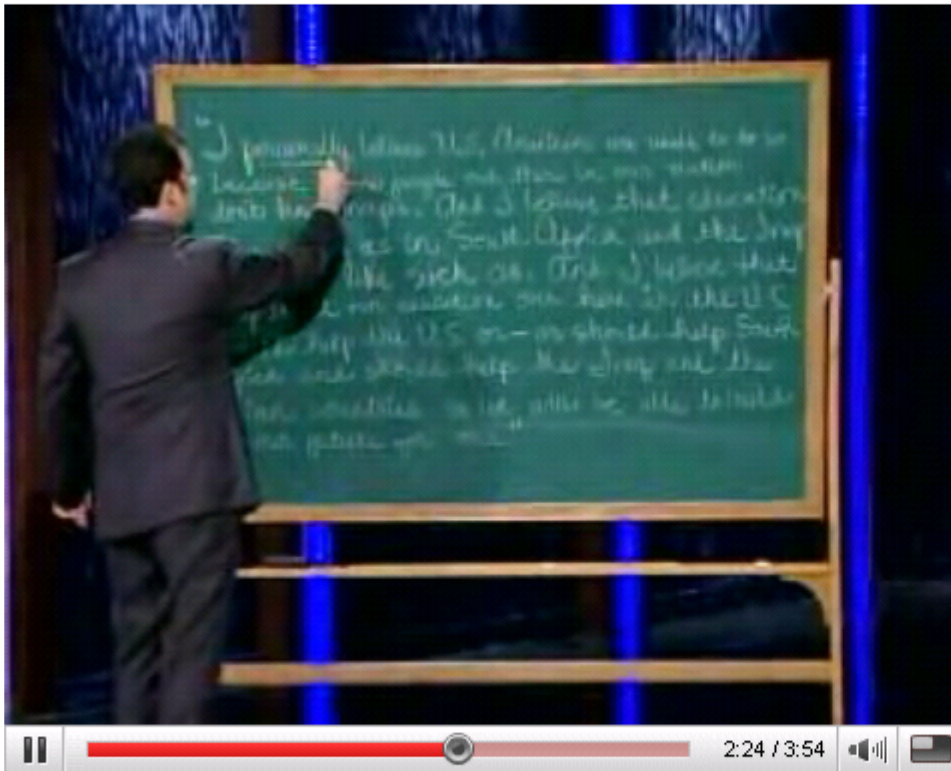 "I personally believe U.S. Americans are unable to do so
because people out there in our nation
don't have maps. And I believe that education
as in South Africa and the Iraq
like such as. And I believe that
our education over here in the U.S.
help the U.S. or—or should help South
and should help the Iraq and the
countries so we will be able to build
our future for
2:24 / 3:54